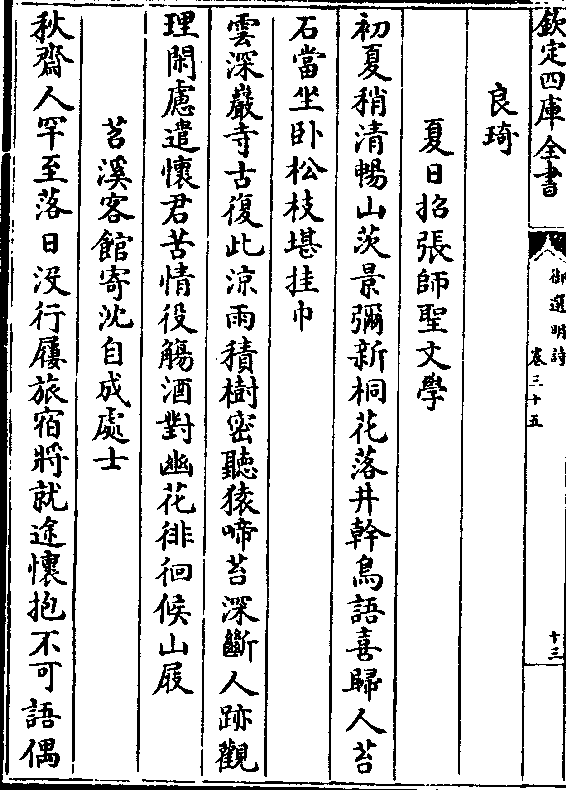 欽定四庫全書
御選明詩
卷三十五
十三
良琦
夏日招張師聖文學
初夏稍清暢山茨景彌新桐花落井幹鳥語喜歸人苔
石當坐卧松枝堪挂巾
雲深巖寺古復此涼雨積樹密聽猿啼苔深斷人跡觀
理閑慮遣懷君苦情役觴酒對幽花徘徊候山屐
苕溪客館寄沈自成處士
秋齋人罕至落日没行屨旅宿將就途懷抱不可語偶